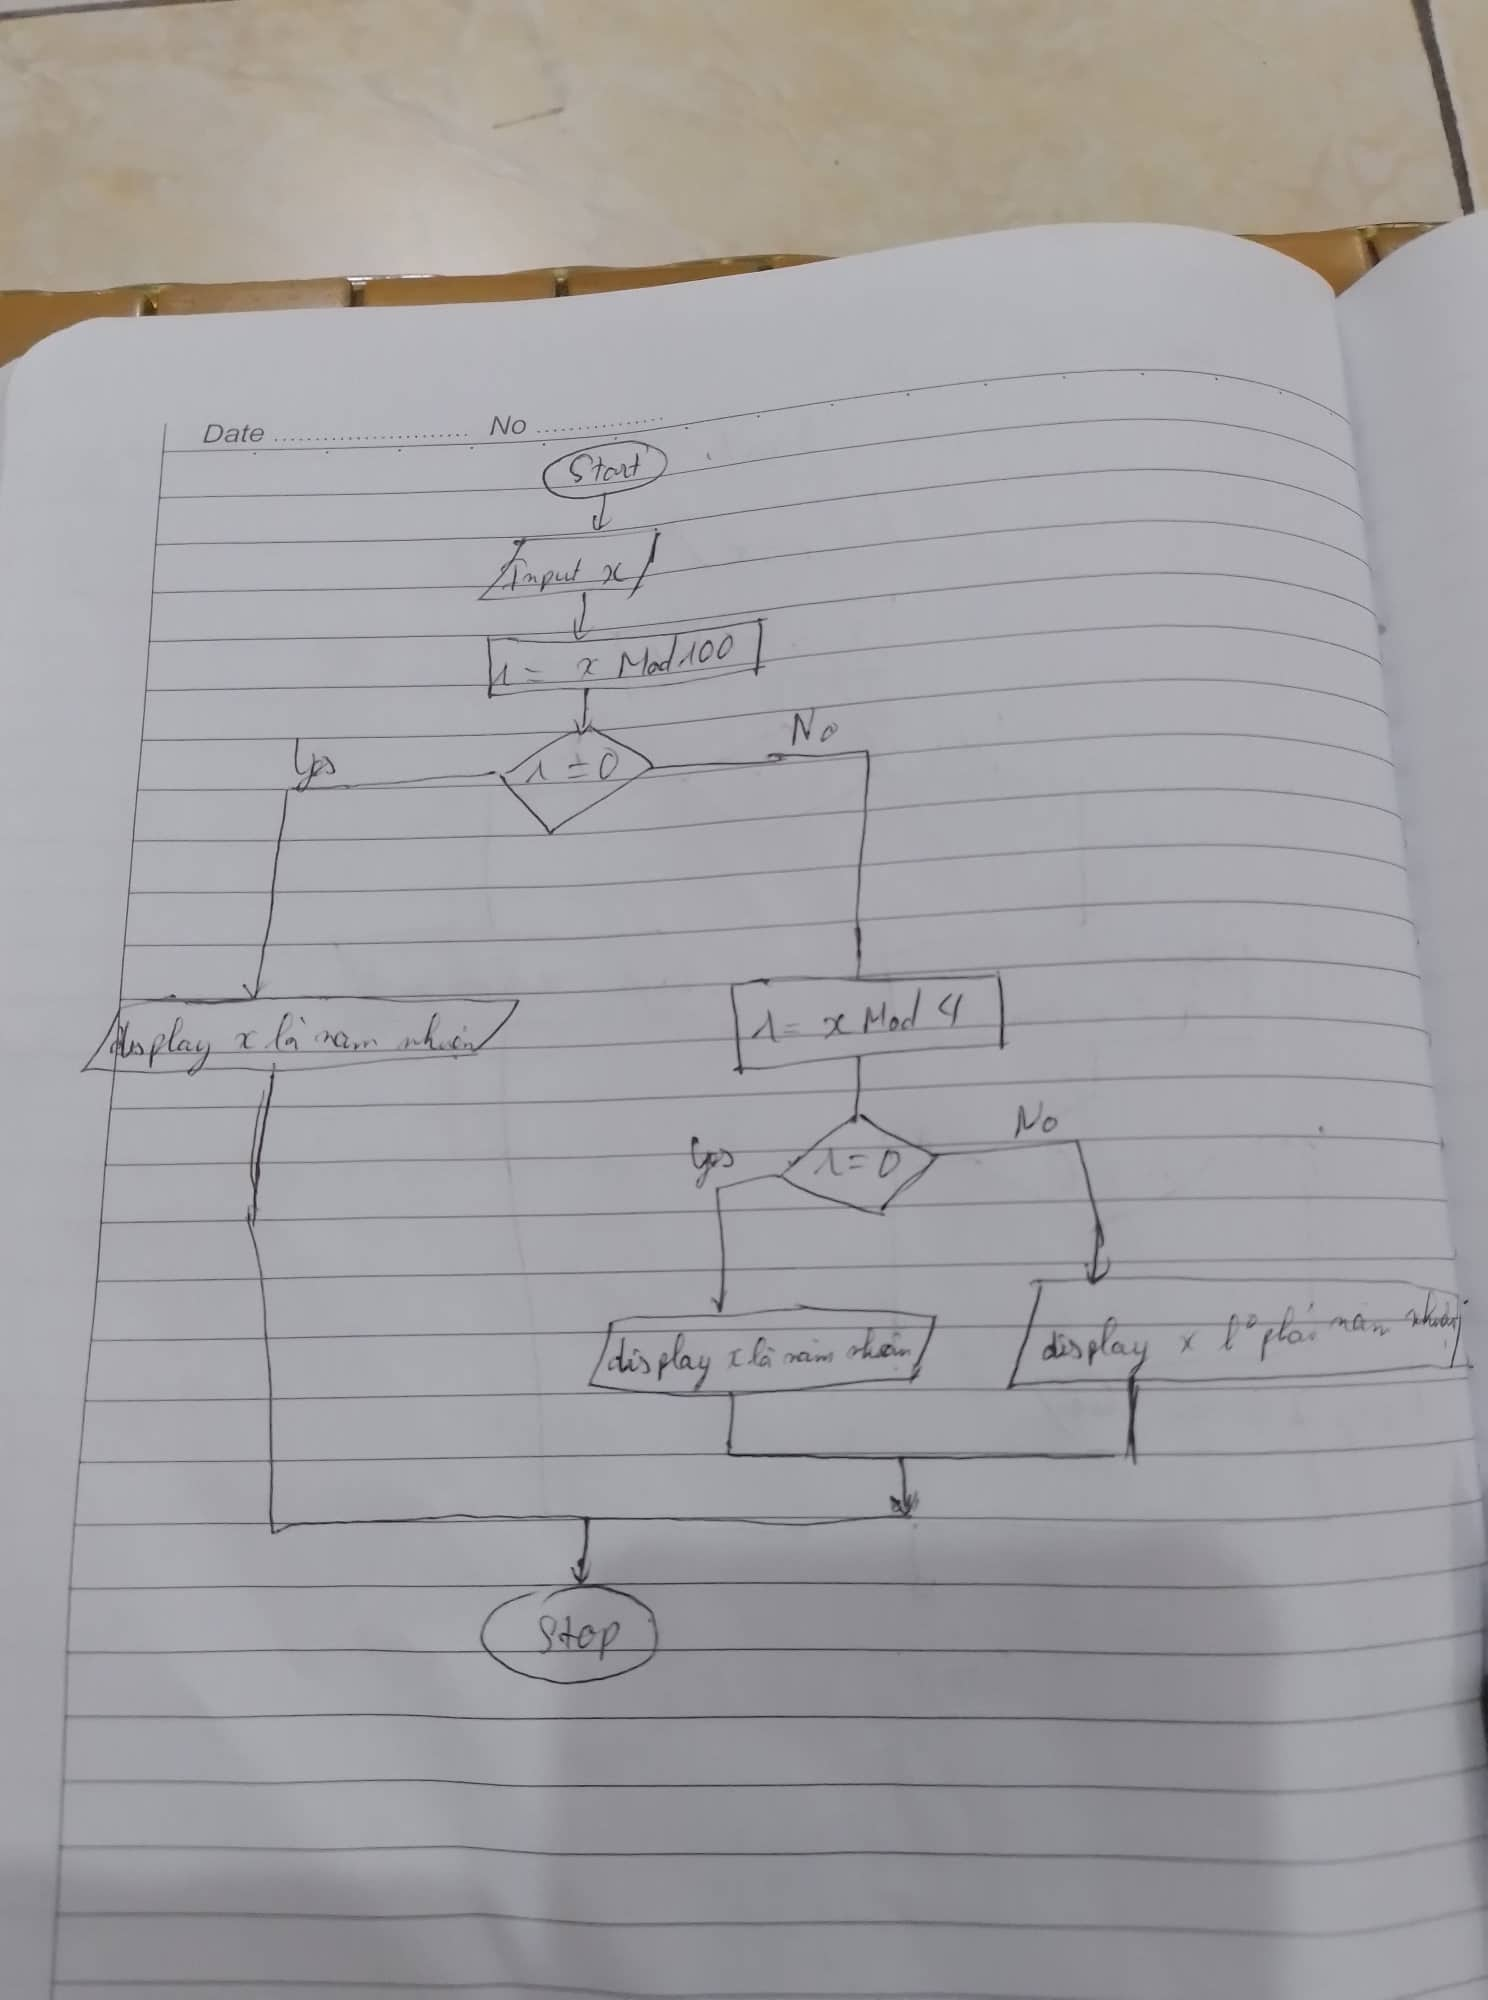 Date No
Start
Input x
r = x Mod 100
r = 0
Yes
No
display x là năm nhuận
r = x Mod 4
r = 0
Yes
No
display x là năm nhuận
display x năm nhuận
Stop